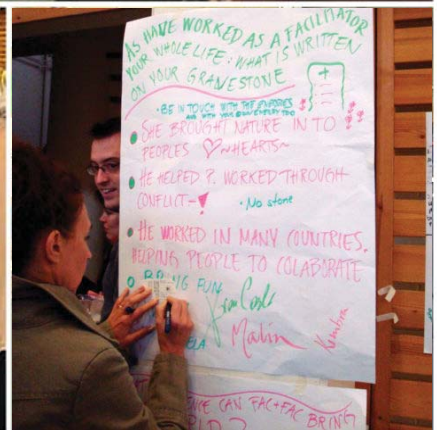 AS HAVE WORKED AS A FACILITATOR
YOUR WHOLE LIFE: WHAT IS WRITTEN
ON YOUR GRAVESTONE
• BE IN TOUCH WITH THE
AND WITH YOUR OWN EMPATHY TOO
• SHE BROUGHT NATURE IN TO
PEOPLES ♡~HEARTS~
• HE HELPED P. WORKED THROUGH
CONFLICT-
• No stone
• HE WORKED IN MANY COUNTRIES.
HELPING PEOPLE TO COLABORATE
• BRING FUN
Malin
CAN FAC+FAC BRING